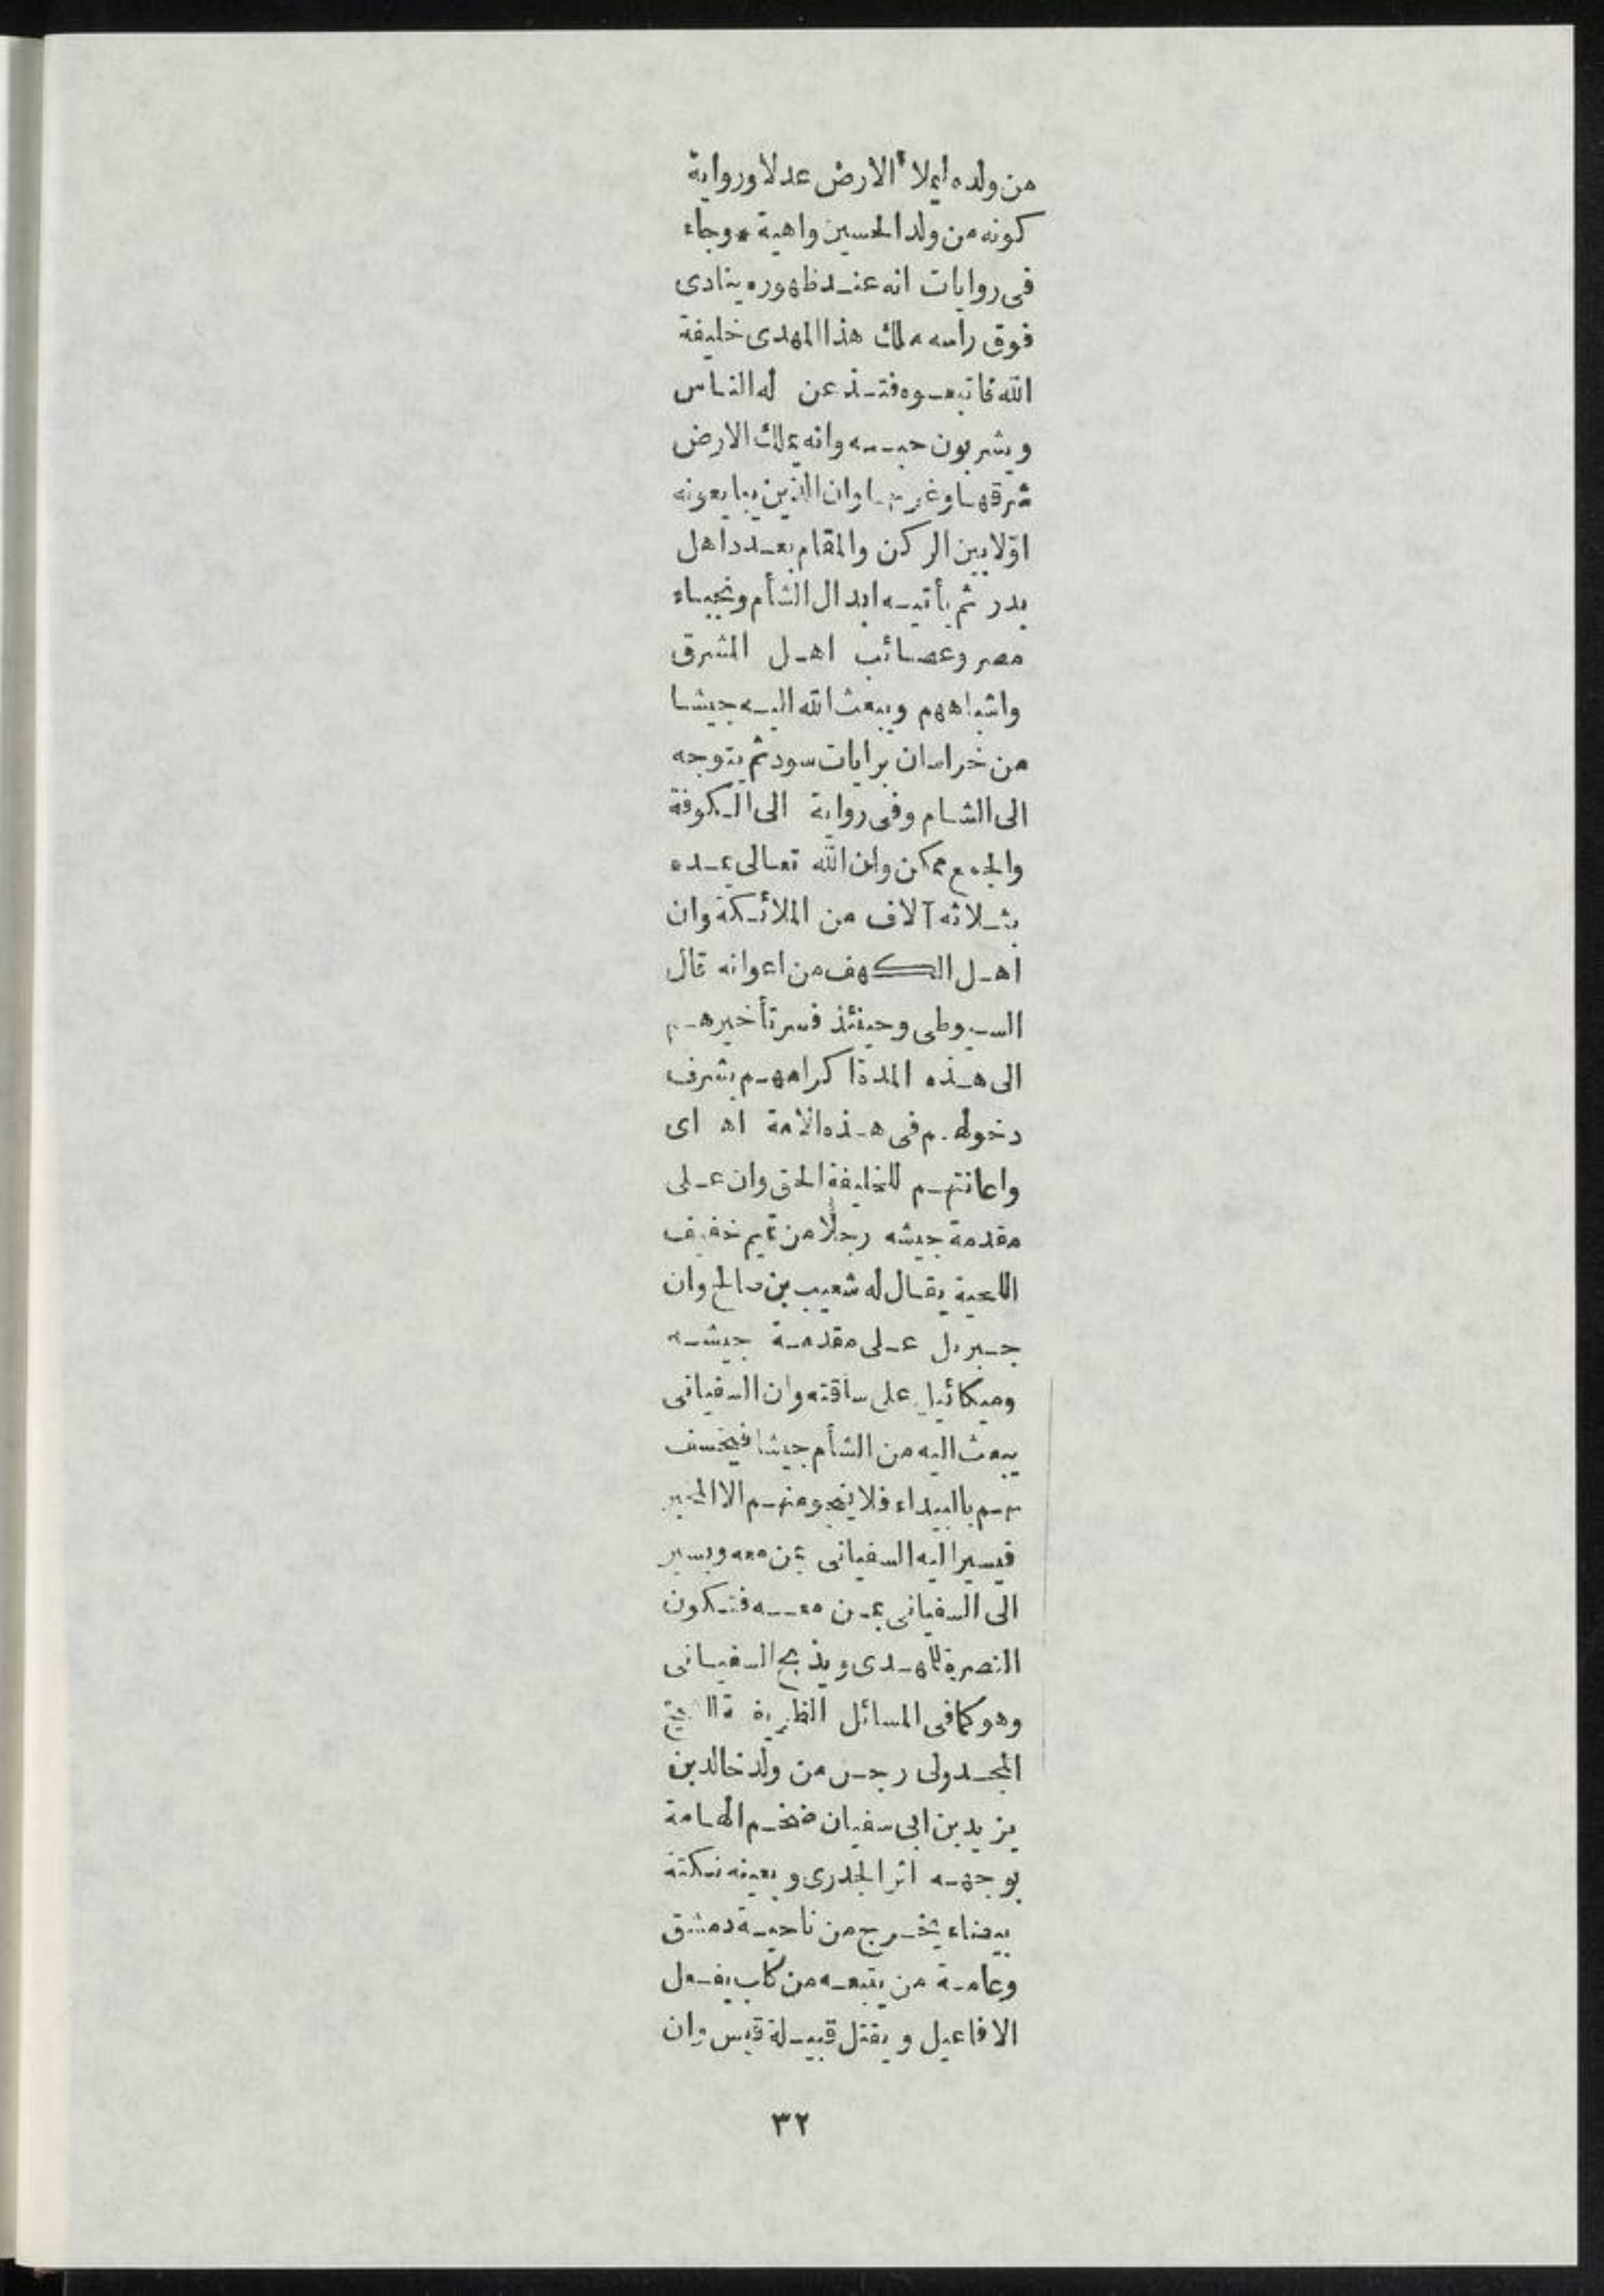 من ولده ليملأ الارض عدلا ورواية
كونه من ولد الحسين واهية * وجاء
فى روايات انه عند ظهوره ينادى
فوق رأسه ملك هذا المهدى خليفة
الله فاتبعوه فتذعن له الناس
ويشربون حبه وانه يملك الارض
شرقها وغربها وان الذين يبايعونه
اوّلا بين الركن والمقام بعدد اهل
بدر ثم يأتيه ابدال الشأم ونجباء
مصر وعصائب اهل المشرق
واشباههم ويبعث الله اليه جيشا
من خراسان برايات سود ثم يتوجه
الى الشام وفى رواية الى الكوفة
والجمع ممكن وان الله تعالى يمده
بثلاثه آلاف من الملائكة وان
اهل الكهف من اعوانه قال
السيوطى وحينئذ فسر تأخيرهم
الى هذه المدة اكرامهم بشرف
دخولهم فى هذه الامة اه اى
واعانتهم للخليفة الحق وان على
مقدمة جيشه رجلا من تميم خفيف
اللحية يقال له شعيب بن صالح وان
جبريل على مقدمة جيشه
وميكائيل على ساقته وان السفيانى
يبعث اليه من الشأم جيشا فيخسف
بهم بالبيداء فلا ينجو منهم الا المخبر
فيسير اليه السفيانى بمن معه ويسير
الى السفيانى بمن معه فتكون
النصرة للمهدى ويذبح السفيانى
وهو كما فى المسائل الظريفة
المجدولى رجل من ولد خالد بن
يزيد بن ابى سفيان ضخم الهامة
بوجهه اثر الجدرى وبعينه نكتة
بيضاء يخرج من ناحية دمشق
وعامة من يتبعه من كلب يفعل
الافاعيل ويقتل قبيلة قيس وان
٣٢